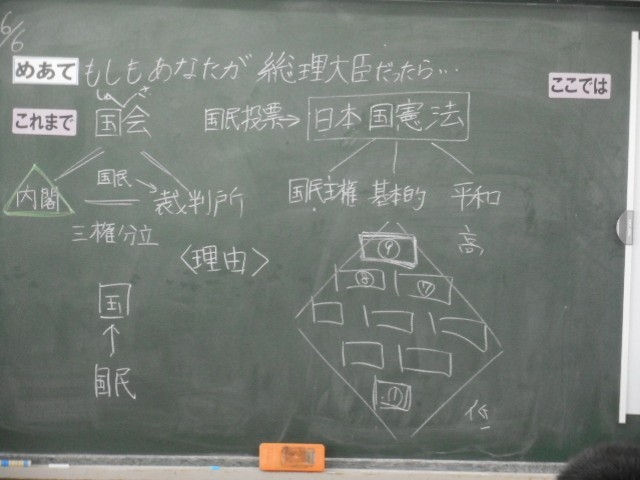 6/6
めあて もしもあなたが 総理大臣だったら…
ここでは
これまで
しゅ さ
国会
国民投票→ 日本国憲法
内閣
国民
裁判所
三権分立
国民主権 基本的 平和
〈理由〉
高
⑨
⑧ ⑦
①
低
国
↑
国民